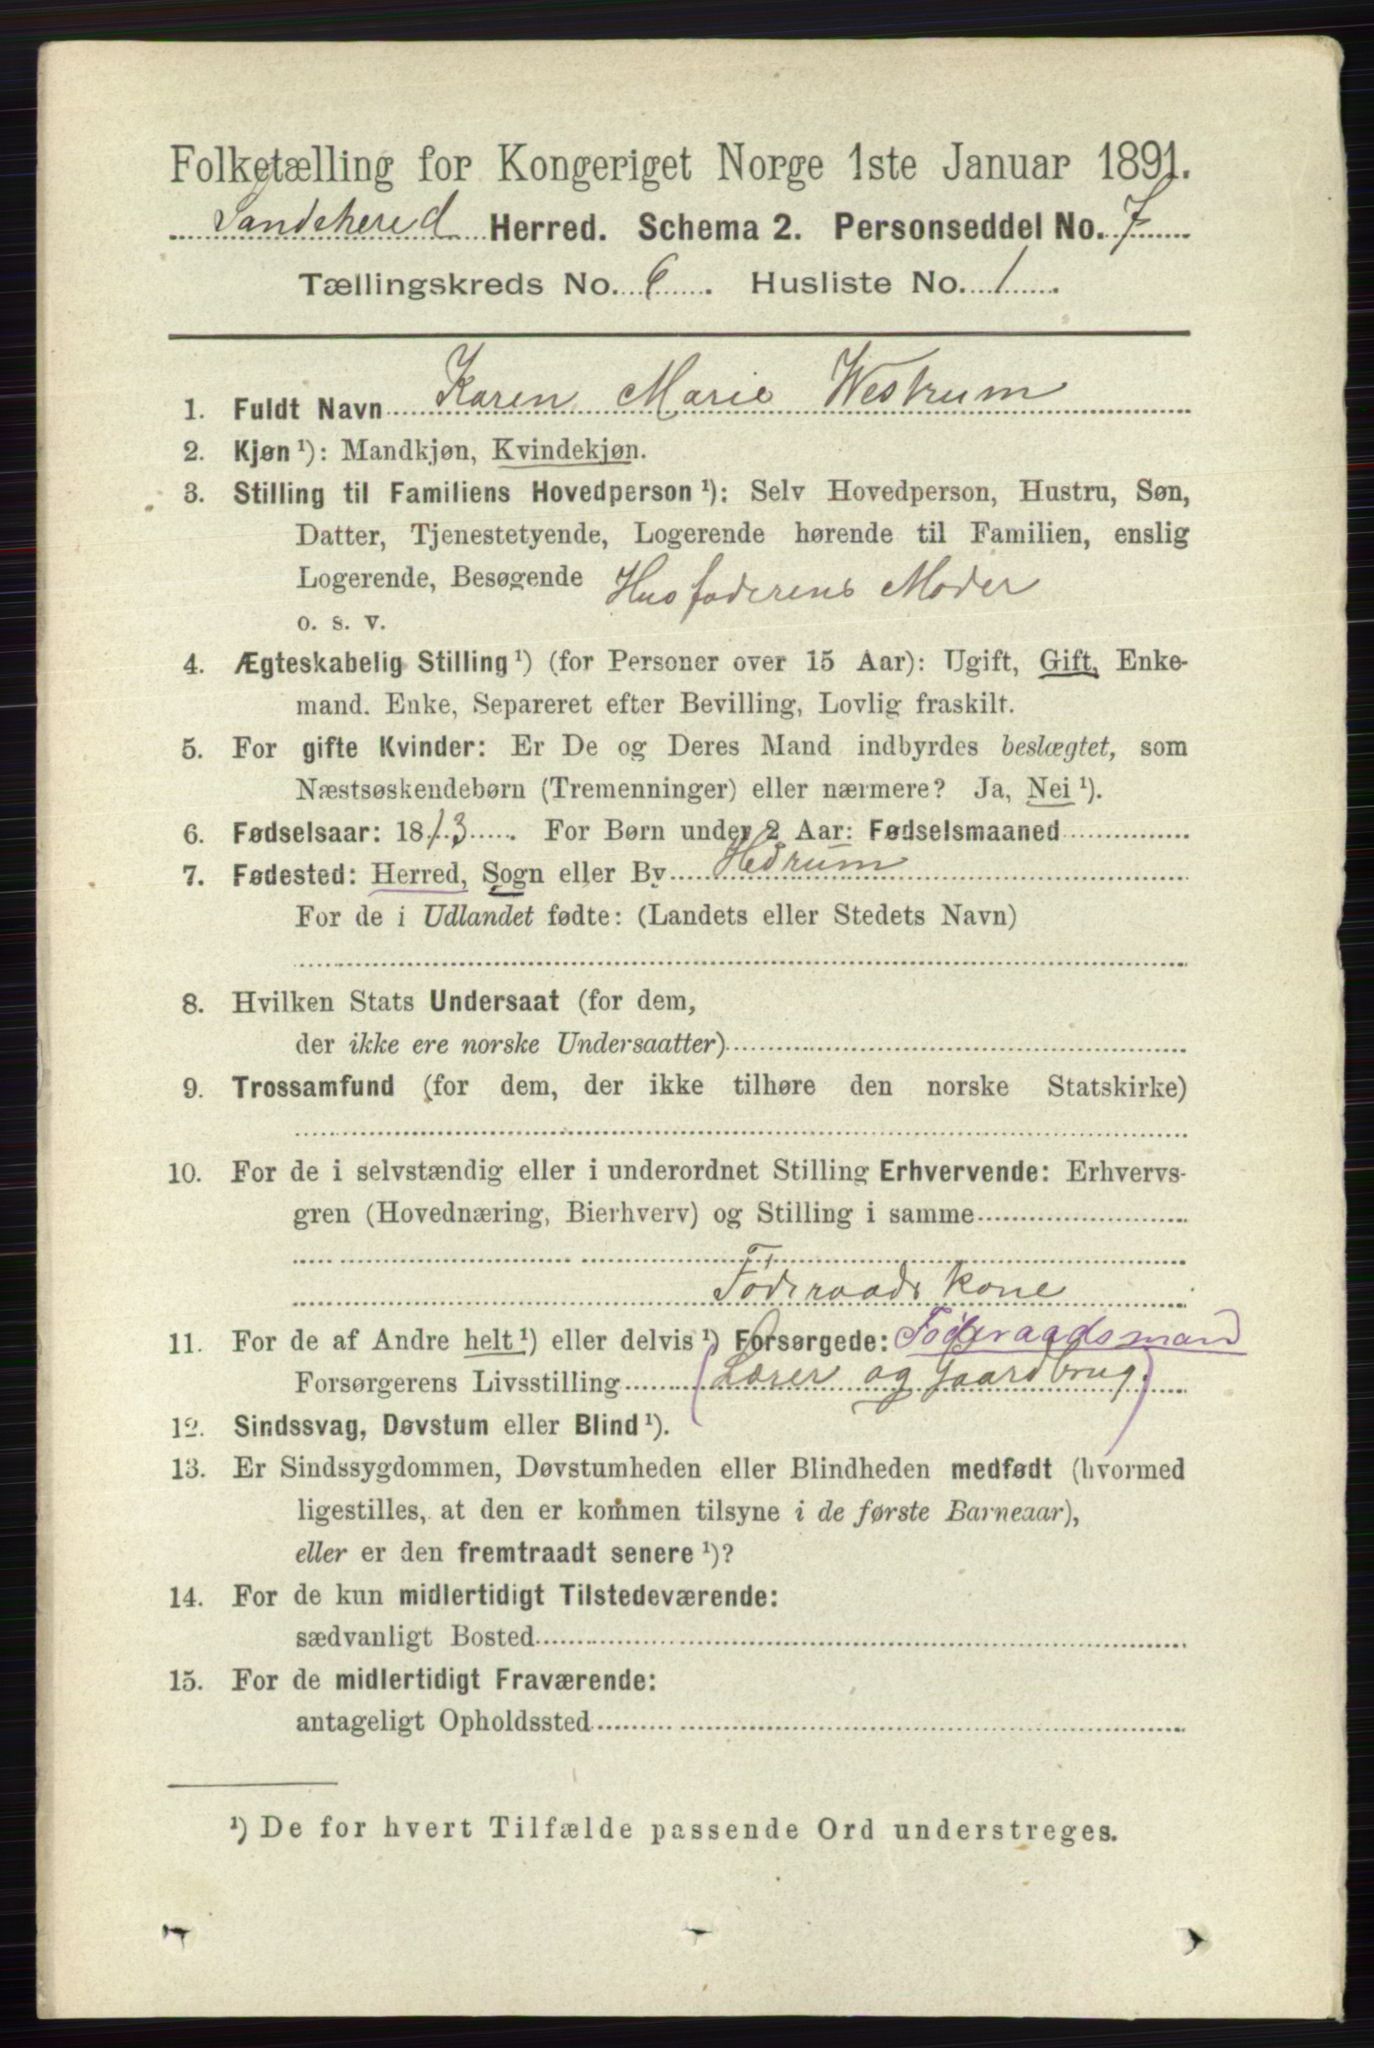 Folketælling for Kongeriget Norge 1ste Januar 1891.
Sandehered Herred. Schema 2. Personseddel No. 7
Tællingskreds No. 6. Husliste No. 1.
1. Fuldt Navn Karen Marie Westrum
2. Kjøn ¹): Mandkjøn, Kvindekjøn.
3. Stilling til Familiens Hovedperson ¹): Selv Hovedperson, Hustru, Søn,
Datter, Tjenestetyende, Logerende hørende til Familien, enslig
Logerende, Besøgende Husfaderens Moder
o. s. v.
4. Ægteskabelig Stilling ¹) (for Personer over 15 Aar): Ugift, Gift, Enke-
mand. Enke, Separeret efter Bevilling, Lovlig fraskilt.
5. For gifte Kvinder: Er De og Deres Mand indbyrdes beslægtet, som
Næstsøskendebørn (Tremenninger) eller nærmere? Ja, Nei ¹).
6. Fødselsaar: 1813. For Børn under 2 Aar: Fødselsmaaned
7. Fødested: Herred, Sogn eller By Hedrum
For de i Udlandet fødte: (Landets eller Stedets Navn)
8. Hvilken Stats Undersaat (for dem,
der ikke ere norske Undersaatter)
9. Trossamfund (for dem, der ikke tilhøre den norske Statskirke)
10. For de i selvstændig eller i underordnet Stilling Erhvervende: Erhvervs-
gren (Hovednæring, Bierhverv) og Stilling i samme
Föderaads Kone
11. For de af Andre helt ¹) eller delvis ¹) Forsørgede: Föderaadsmand
Forsørgerens Livsstilling (Lærer og Gaardbrug.)
12. Sindssvag, Døvstum eller Blind ¹).
13. Er Sindssygdommen, Døvstumheden eller Blindheden medfødt (hvormed
ligestilles, at den er kommen tilsyne i de første Barneaar),
eller er den fremtraadt senere ¹)?
14. For de kun midlertidigt Tilstedeværende:
sædvanligt Bosted
15. For de midlertidigt Fraværende:
antageligt Opholdssted
¹) De for hvert Tilfælde passende Ord understreges.